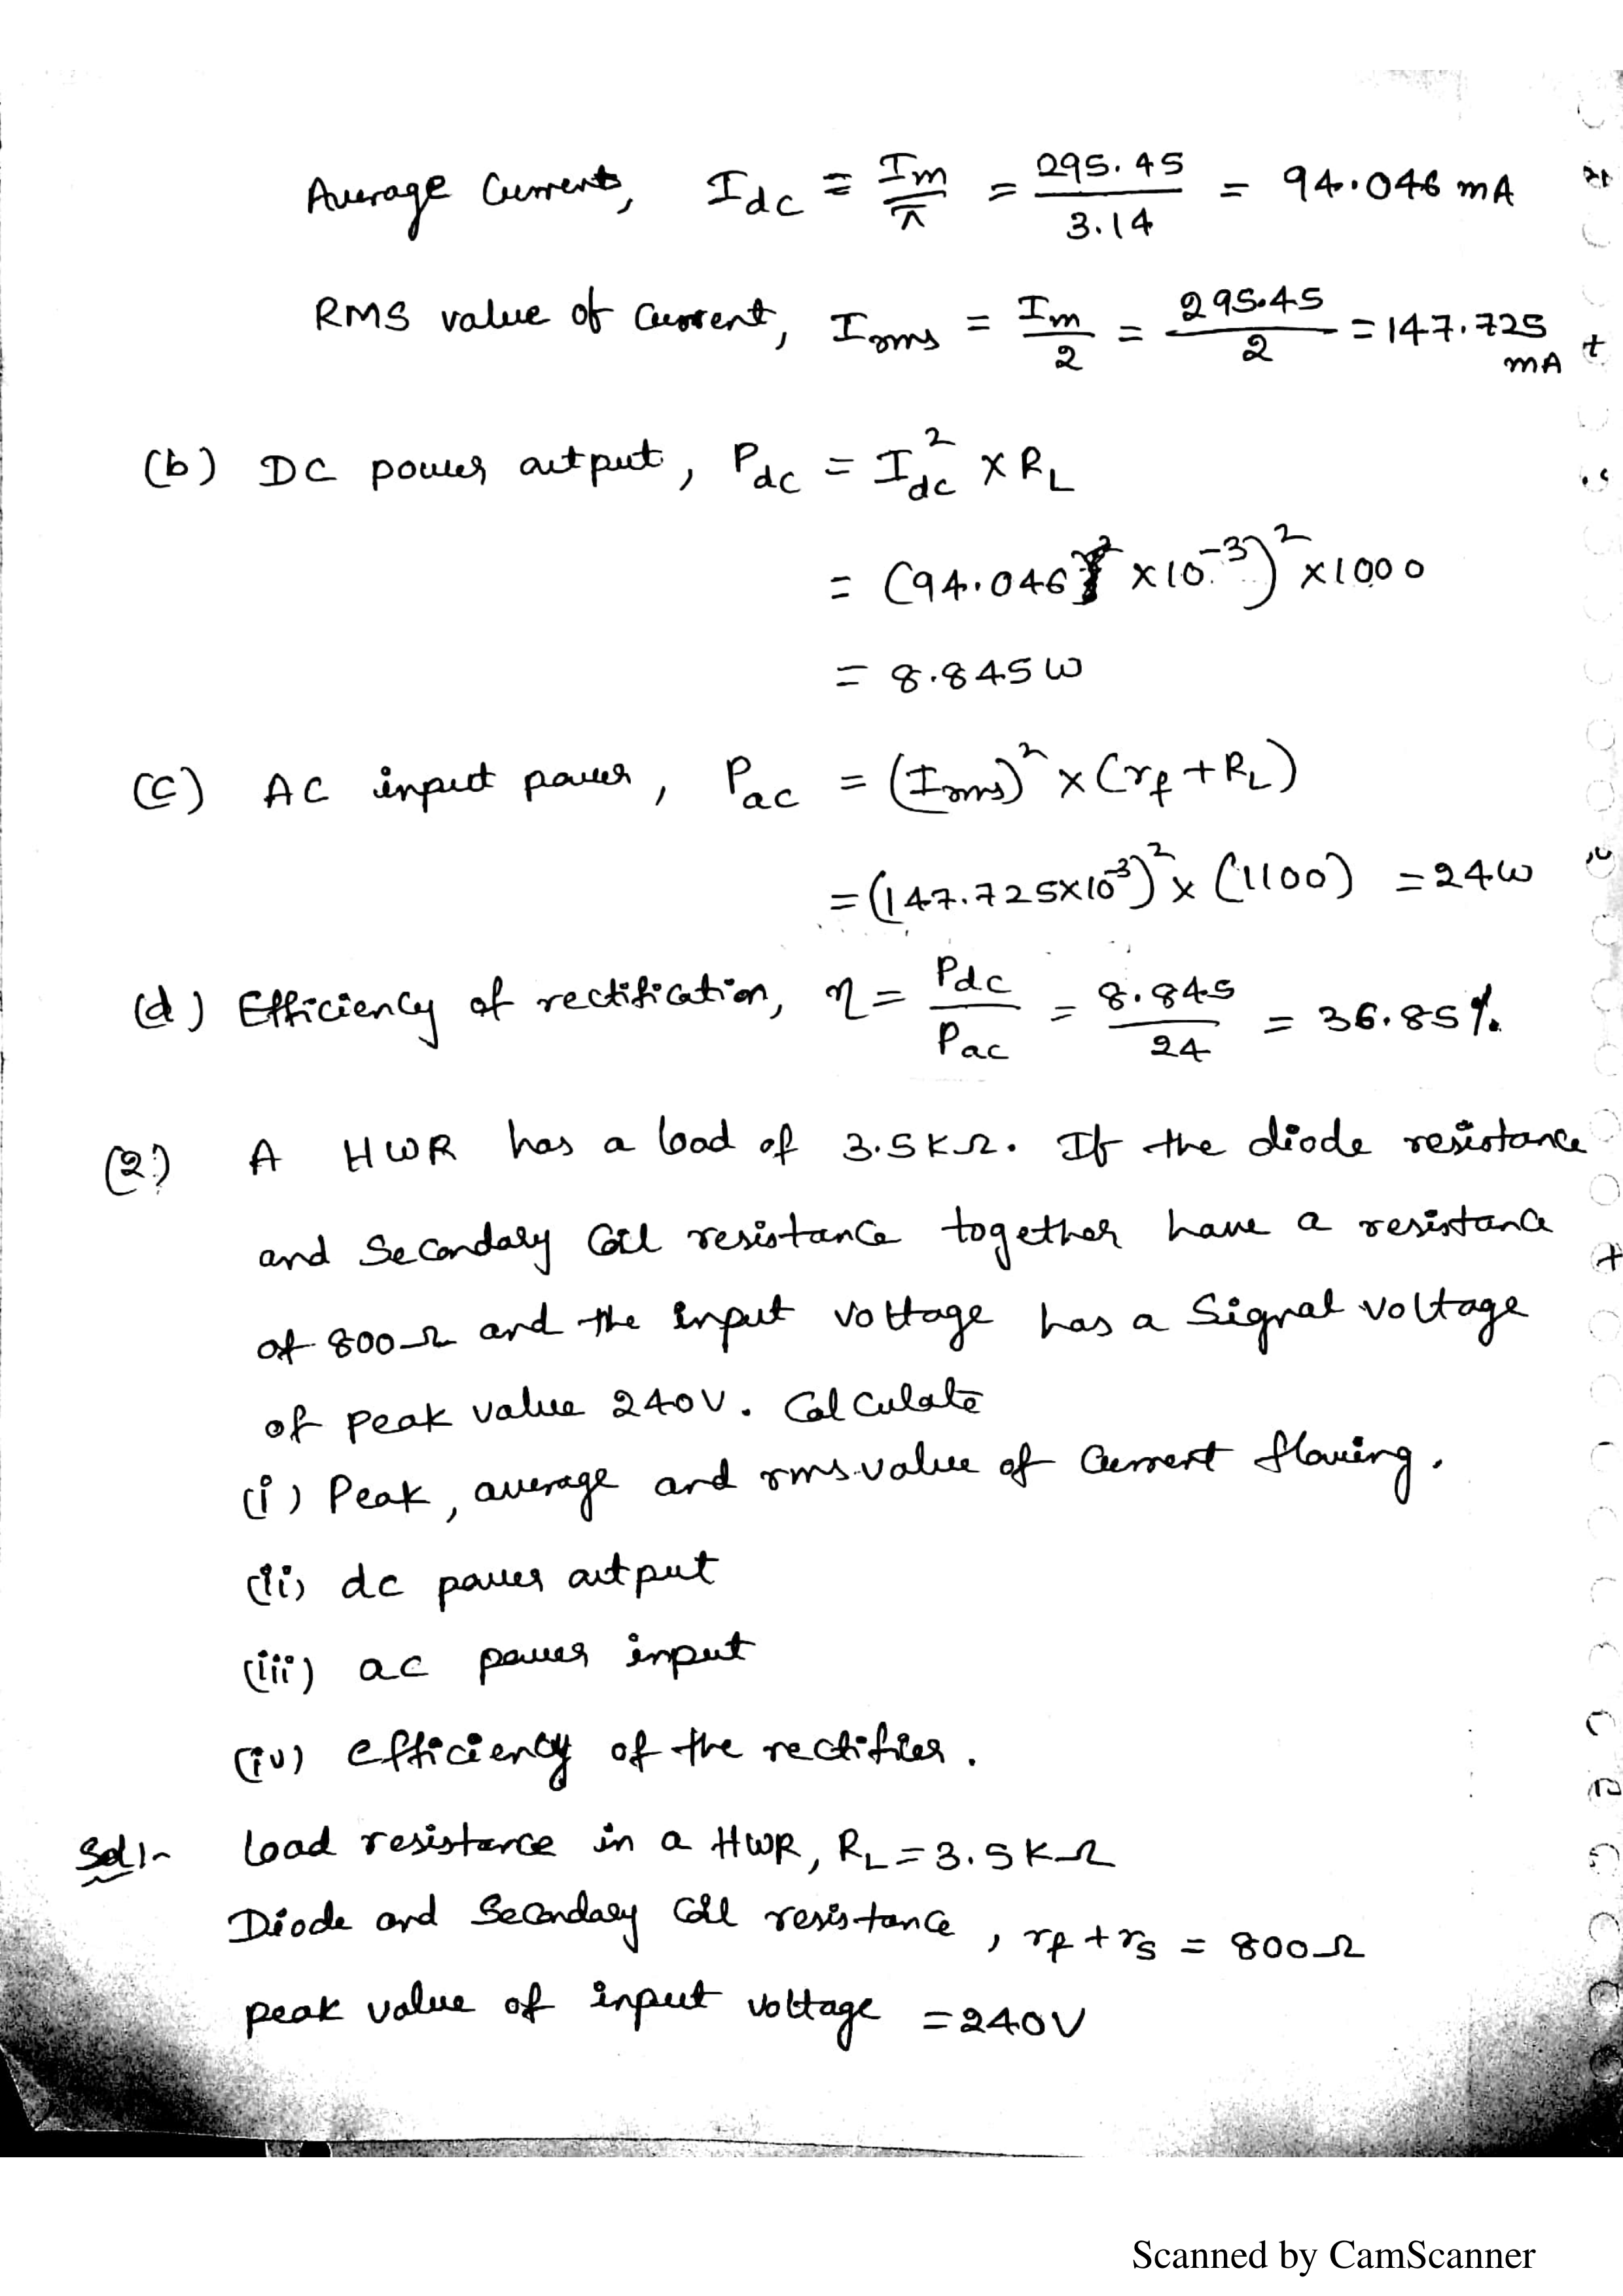 Average Current, Idc = Im/π = 295.45/3.14 = 94.046 mA
RMS value of Current, Irms = Im/2 = 295.45/2 = 147.725 mA
(b) DC power output, Pdc = Idc² × RL
= (94.046 × 10⁻³)² × 1000
= 8.845 W
(c) AC input power, Pac = (Irms)² × (rf + RL)
= (147.725×10⁻³)² × (1100) = 24W
(d) Efficiency of rectification, η = Pdc/Pac = 8.845/24 = 36.85%
(2) A HWR has a load of 3.5KΩ. If the diode resistance
and Secondary Coil resistance together have a resistance
of 800Ω and the input voltage has a Signal voltage
of peak value 240V. Calculate
(i) Peak, average and rms value of Current flowing.
(ii) dc power output
(iii) ac power input
(iv) efficiency of the rectifier.
Sol:- Load resistance in a HWR, RL = 3.5KΩ
Diode and Secondary Coil resistance, rf + rs = 800Ω
peak value of input voltage = 240V
Scanned by CamScanner